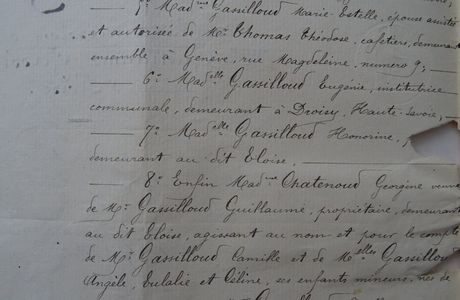 5° Mad^me Gassilloud Marie Estelle, épouse assistée
et autorisée de M^r Thomas Théodose, cafetier, demeurant
ensemble à Genève, rue Magdeleine, numero 9;
6° Mad^elle Gassilloud Eugénie, institutrice
communale, demeurant à Droisy, Haute-Savoie;
7° Mad^elle Gassilloud Honorine,
demeurant au dit Eloise,
8° Enfin Mad^me Chatenoud Georgine veuve
de M^r Gassilloud Guillaume, propriétaire, demeurant
au dit Eloise, agissant au nom et pour le compte
de M^r Gassilloud Camille et de M^elles Gassilloud
Angèle, Eulalie et Céline, ses enfants mineurs, nés de